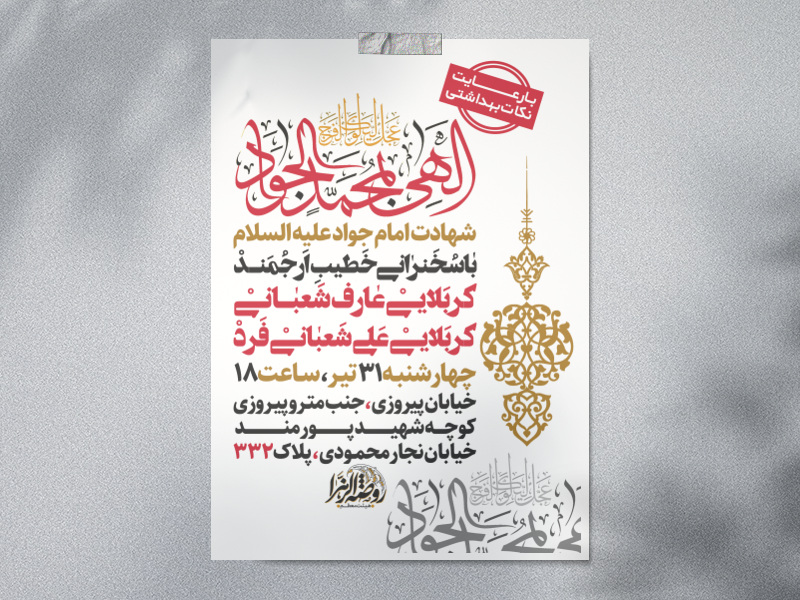 با رعایت
نکات بهداشتی
عجل لولیک الفرج
الهی بمحمد الجواد
شهادت امام جواد علیه السلام
باسُخَنرانی خَطیبِ اَرجُمَندْ
کربَلایی عارف شَعبانی
کربَلایی عَلی شَعبانی فَردْ
چهارشنبه ۳۱ تیر، ساعت ۱۸
خیابان پیروزی، جنب مترو پیروزی
کوچه شهید پورمند
خیابان نجار محمودی، پلاک ۳۳۲
روضة الزهرا
هیئت معظم